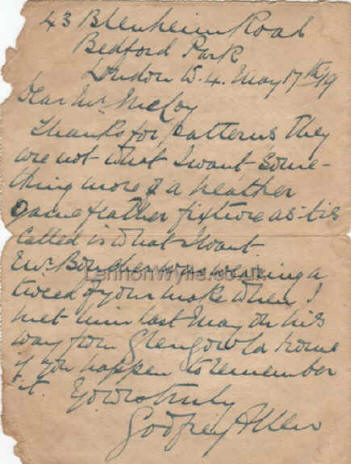 43 Blenheim Road
Bedford Park
London W.4. May 17th/19
Dear Mr McCoy
Thanks for patterns they
are not what I want some-
thing more of a heather
game feather fixture as its
called is what I want.
Mr was wearing a
tweed of your make when I
met him last May on his
way from home
if you happen to remember
it. Yours truly
Godfrey Allen